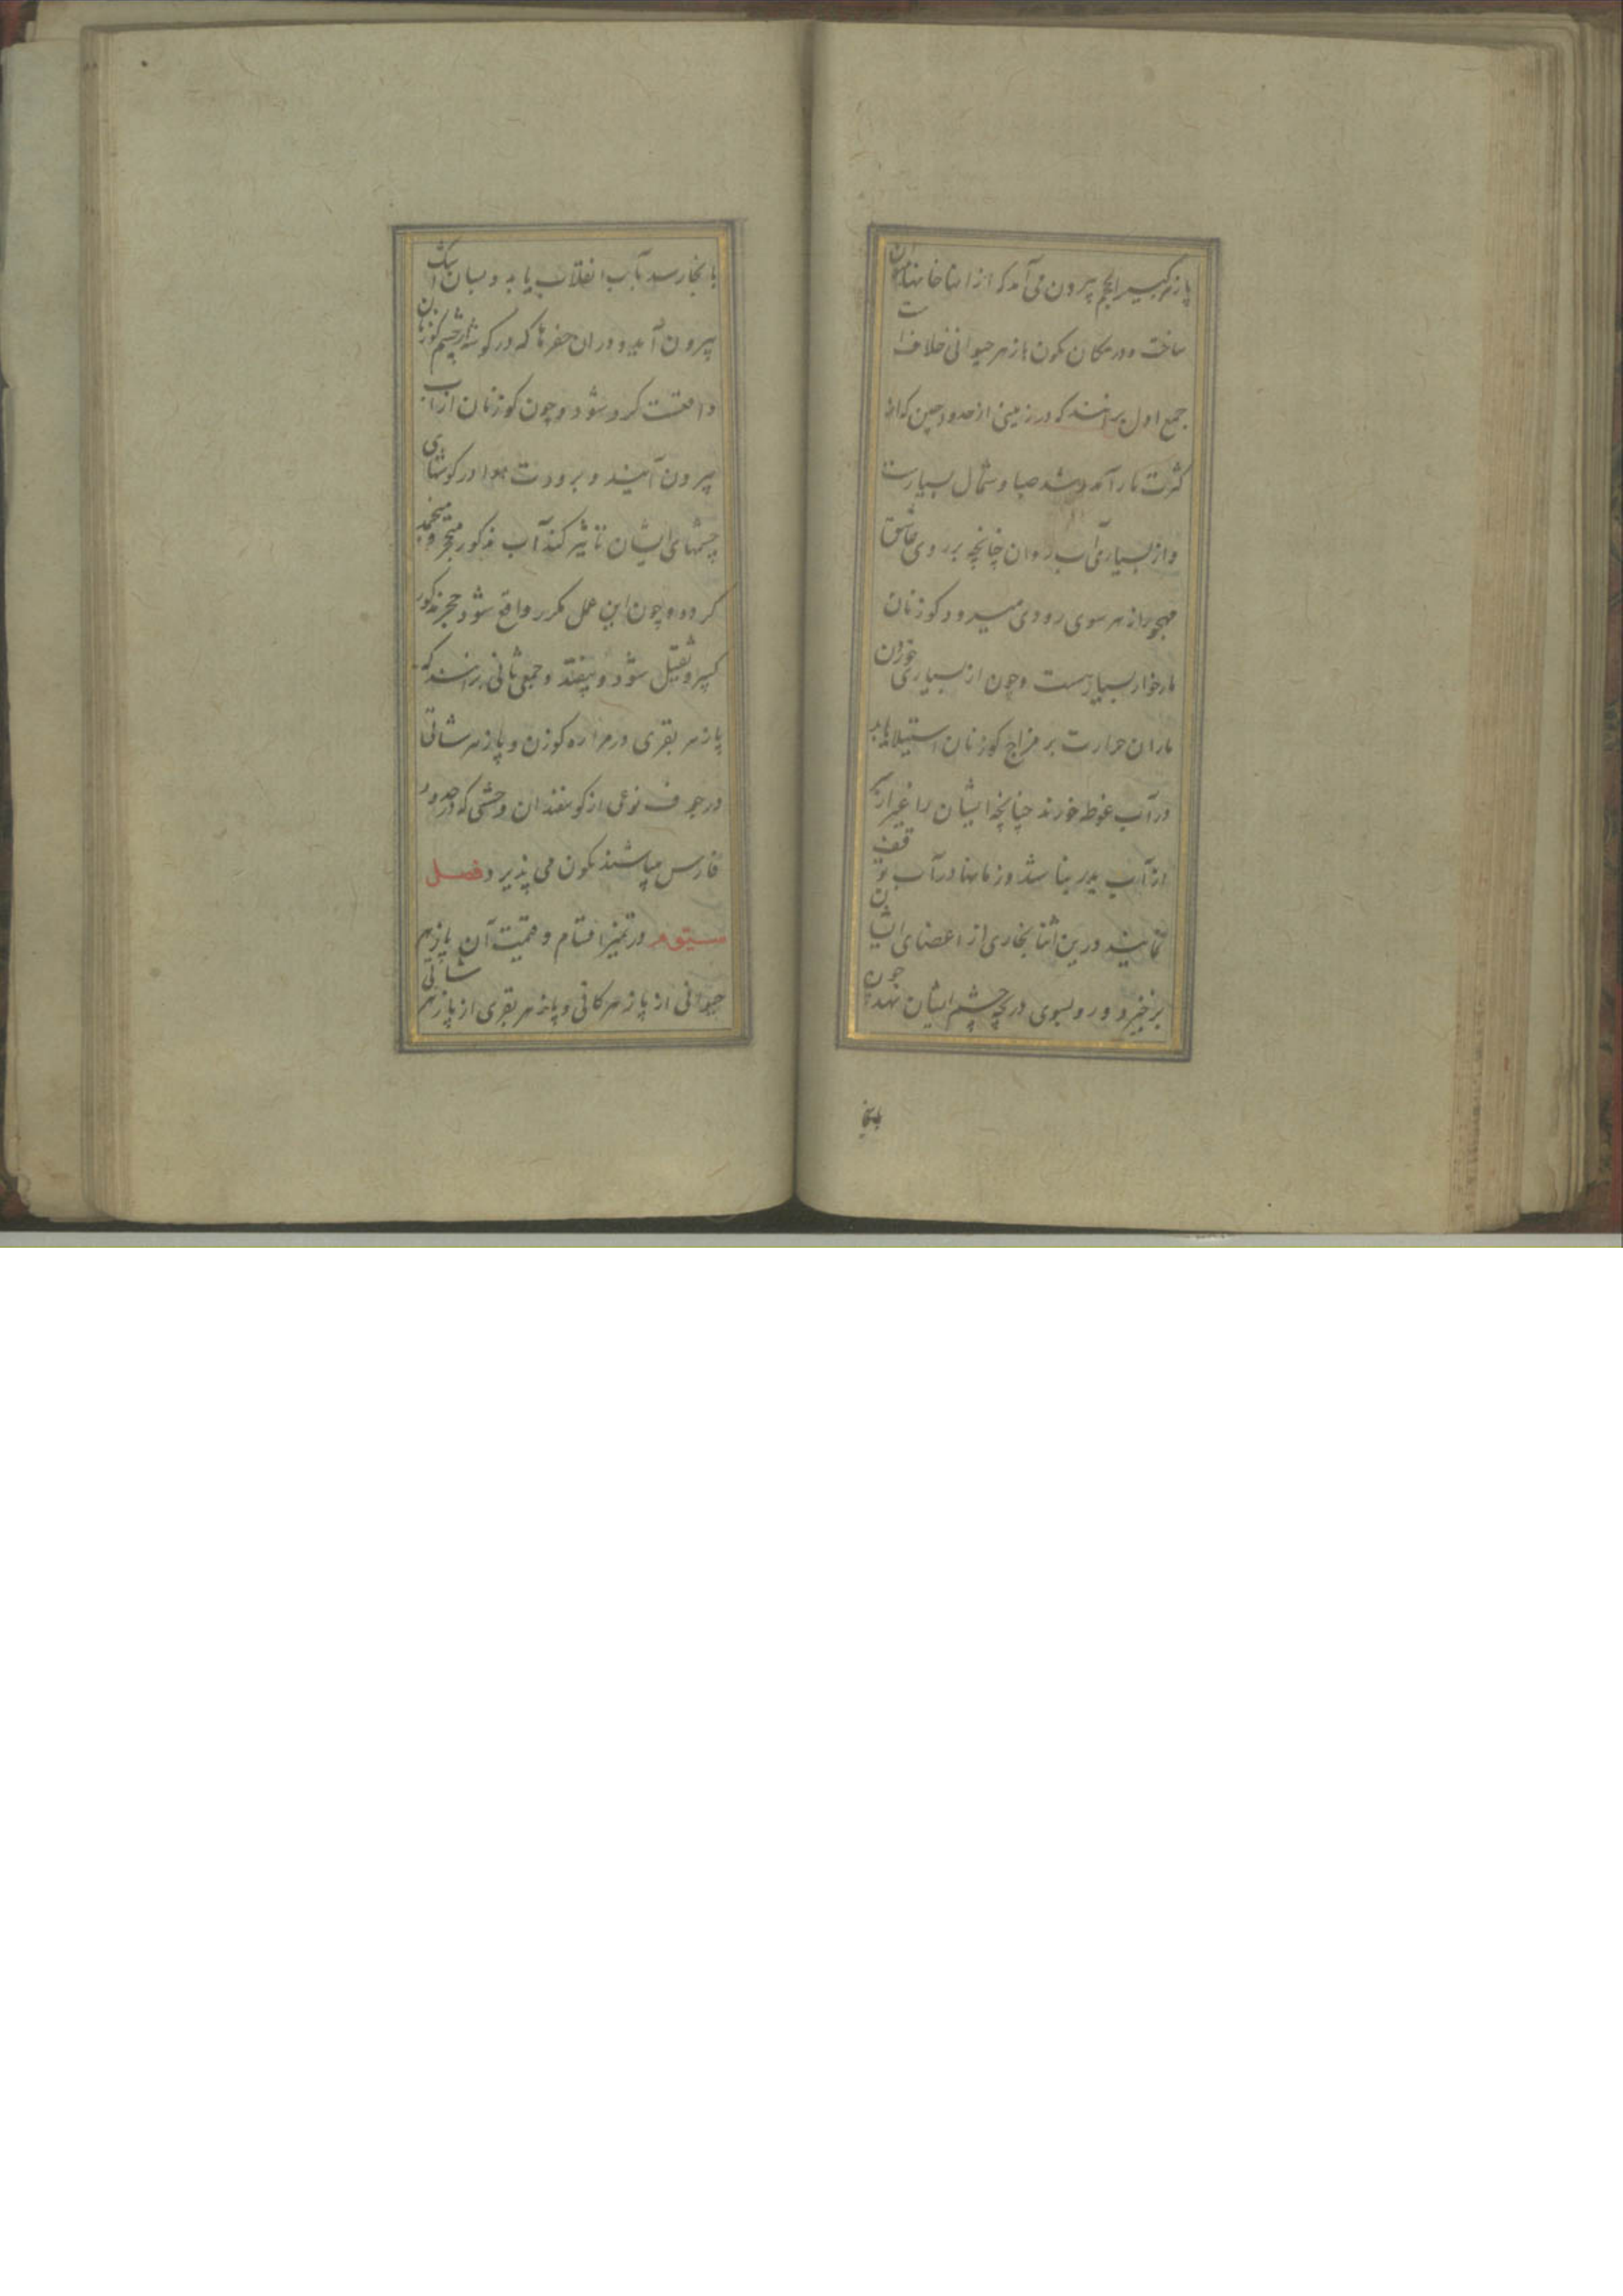 پازهر کبیر الحجم بیرون می آمد که از انها خانها میتوان
ساخت و در مکان تکون پازهر حیوانی خلاف است
جمع اول برانند که در زمینی از حدود چین که از
کثرت مار آمد و شد صبا و شمال بسیارست
و از بسیاری آب روان چنانچه بر روی عاشق
مهجور از هر سوی رودی میرود کوزنان
مارخوار بسیارست و چون از بسیاری خوردن
ماران حرارت بر مزاج کوزنان استیلا یابد
در آب غوطه خورند چنانچه ایشان را غیر از سر
از آب بدر نباشد و زمانها در آب توقف
نمایند درین اثنا بخاری از اعضای ایشان
برخیزد و رو بسوی دریچه چشم ایشان نهد چون
بانجا
بانجا رسد بآب انقلاب یابد و بسان اشک
بیرون آید و در ان حفرها که در کوشه چشم کوزنان
واقعست کرد شود و چون کوزنان از آب
بیرون آیند و برودت هوا در کوشهای
چشمهای ایشان تاثیر کند آب مذکور متحجر و منجمد
کردد و چون این عمل مکرر واقع شود حجر مذکور
کبیر و ثقیل شود و بیفتد و جمعی ثانی برانند که
پازهر بقری در مراره کوزن و پازهر شاتی
در جوف نوعی از کوسفندان وحشی که در حدود
فارس میباشند تکون می پذیرد فصل
سیوم در تمیز اقسام و قیمت آن پازهر
حیوانی از پازهر کانی و پازهر بقری از پازهر شاتی